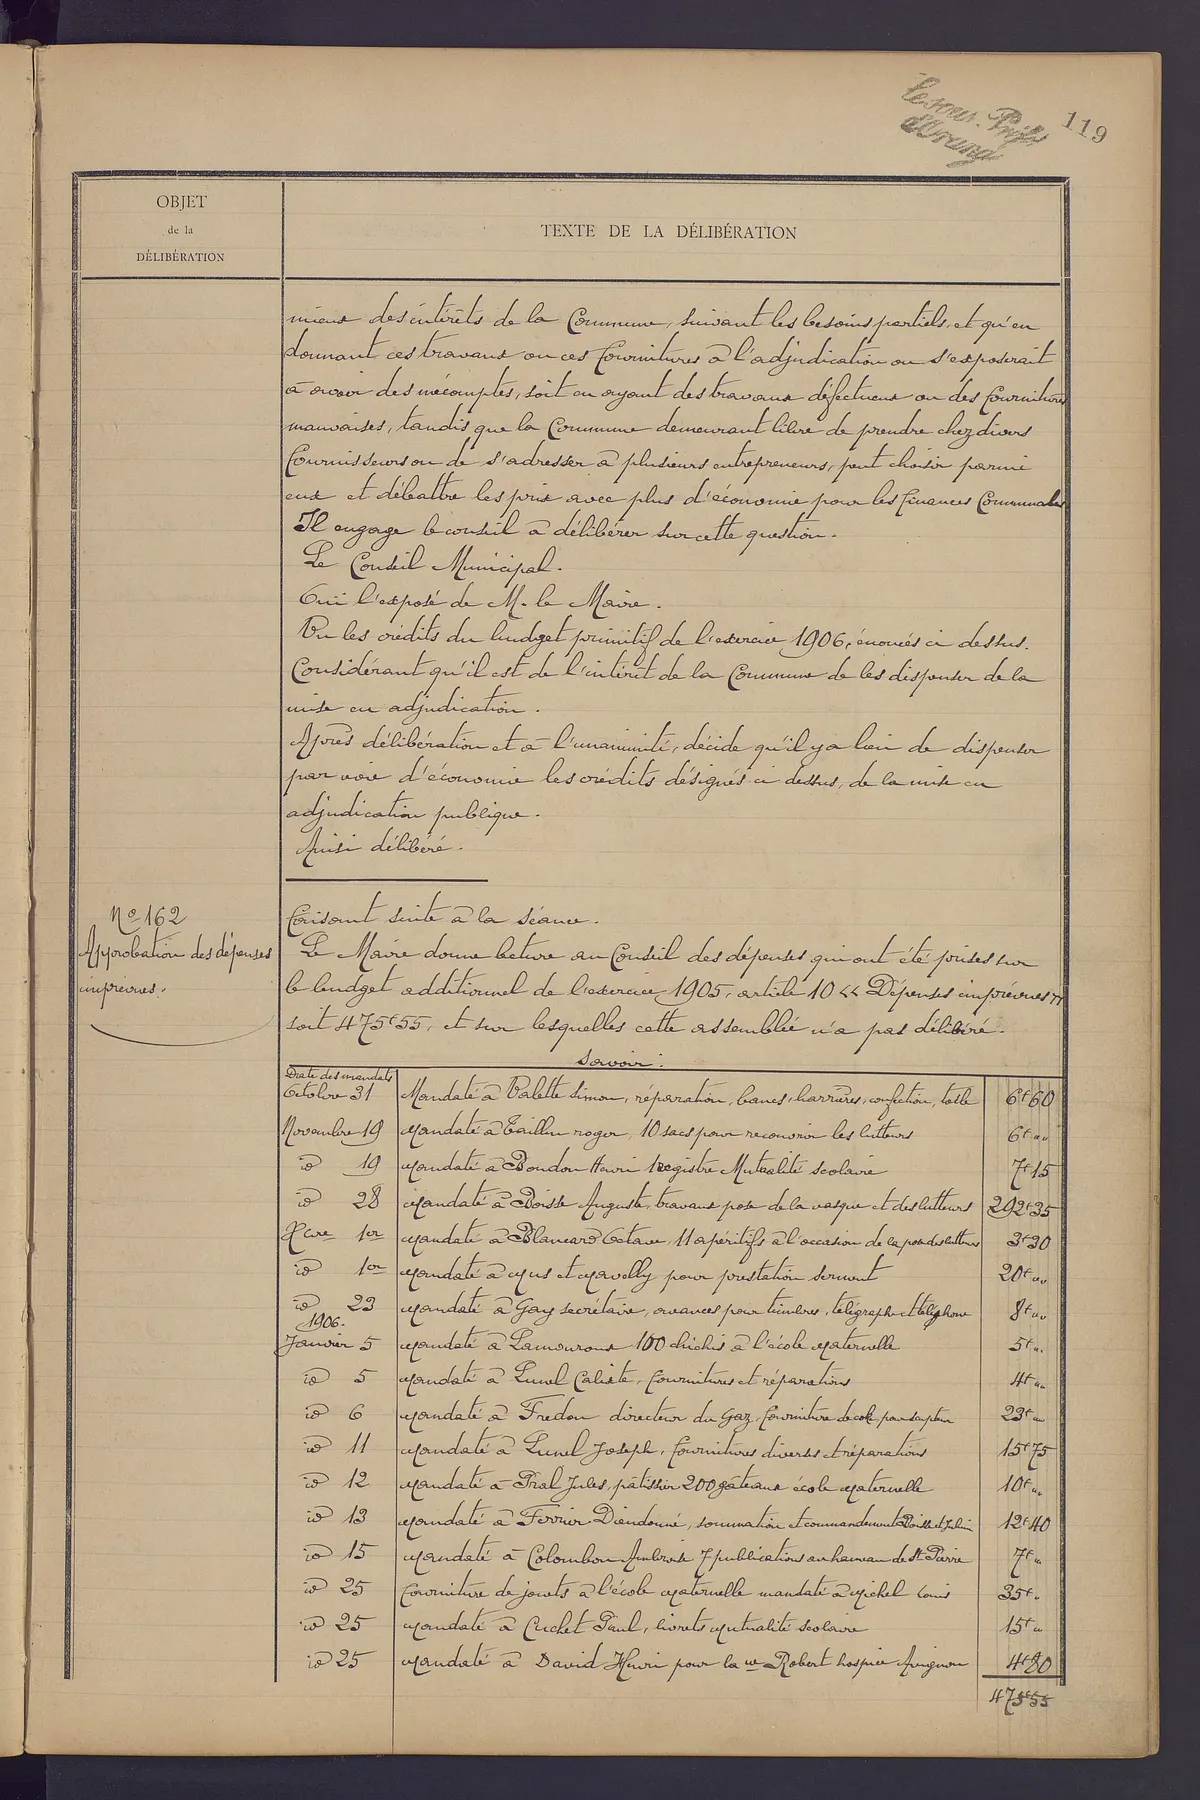 119
OBJET
de la
DÉLIBÉRATION
TEXTE DE LA DÉLIBÉRATION
mieux des intérêts de la Commune, suivant les besoins partiels, et qu'en
donnant ces travaux ou ces fournitures à l'adjudication on s'exposerait
à avoir des mécomptes, soit en ayant des travaux défectueux ou des fournitures
mauvaises, tandis que la Commune demeurant libre de prendre chez divers
fournisseurs ou de s'adresser à plusieurs entrepreneurs, peut choisir parmi
eux et débattre les prix avec plus d'économie pour les finances Communales
Il engage le conseil à délibérer sur cette question.
Le Conseil Municipal.
Ouï l'exposé de M. le Maire.
Vu les crédits du budget primitif de l'exercice 1906, énoncés ci dessus.
Considérant qu'il est de l'intérêt de la Commune de les dispenser de la
mise en adjudication.
Après délibération et à l'unanimité, décide qu'il y a lieu de dispenser
par voie d'économie les crédits désignés ci dessus, de la mise en
adjudication publique.
Ainsi délibéré.
No 162
Approbation des dépenses
imprévues.
Faisant suite à la séance.
Le Maire donne lecture au Conseil des dépenses qui ont été prises sur
le budget additionnel de l'exercice 1905, article 10 << Dépenses imprévues >>
soit 475f55, et sur lesquelles cette assemblée n'a pas délibéré.
Savoir:
Date des mandats
Octobre 31 Mandaté à Valette Simon, réparation, bancs, barrières, confection, toile 6f60
Novembre 19 Mandaté à Taillun roger, 10 sacs pour recouvrir les lutteurs 6f""
id 19 Mandaté à Boudon Henri 1 registre Mutualité scolaire 7f15
id 28 Mandaté à Boisse Auguste, travaux pose de la vasque et des lutteurs 292f35
Xbre 1er Mandaté à Blancard Octave, 11 apéritifs à l'occasion de la pose des lutteurs 3f30
id 1er Mandaté à Mus et Mavelly pour prestation serment 20f""
id 23 Mandaté à Gay secrétaire, avances pour timbres, télégraphe et téléphone 8f""
1906.
Janvier 5 Mandaté à Lamouroux 100 chichis à l'école Maternelle 5f"
id 5 Mandaté à Lunel Calixte, fournitures et réparations 4f""
id 6 Mandaté à Fredon directeur du Gaz, fourniture de coke pour sculpteur 23f"
id 11 Mandaté à Lunel Joseph, fournitures diverses et réparations 15f75
id 12 Mandaté à Pral Jules, pâtissier 200 gâteaux école Maternelle 10f"
id 13 Mandaté à Ferrier Dieudonné, sommation et commandement Boisse et Julien 12f40
id 15 Mandaté à Colombon Ambroise 7 publications au hameau de St Pierre 7f"
id 25 Fourniture de jouets à l'école Maternelle mandaté à Michel Louis 35f"
id 25 Mandaté à Cuchet Paul, livrets Mutualité scolaire 15f"
id 25 Mandaté à David Henri pour la ve Robert hospice Avignon 4f80
475f55